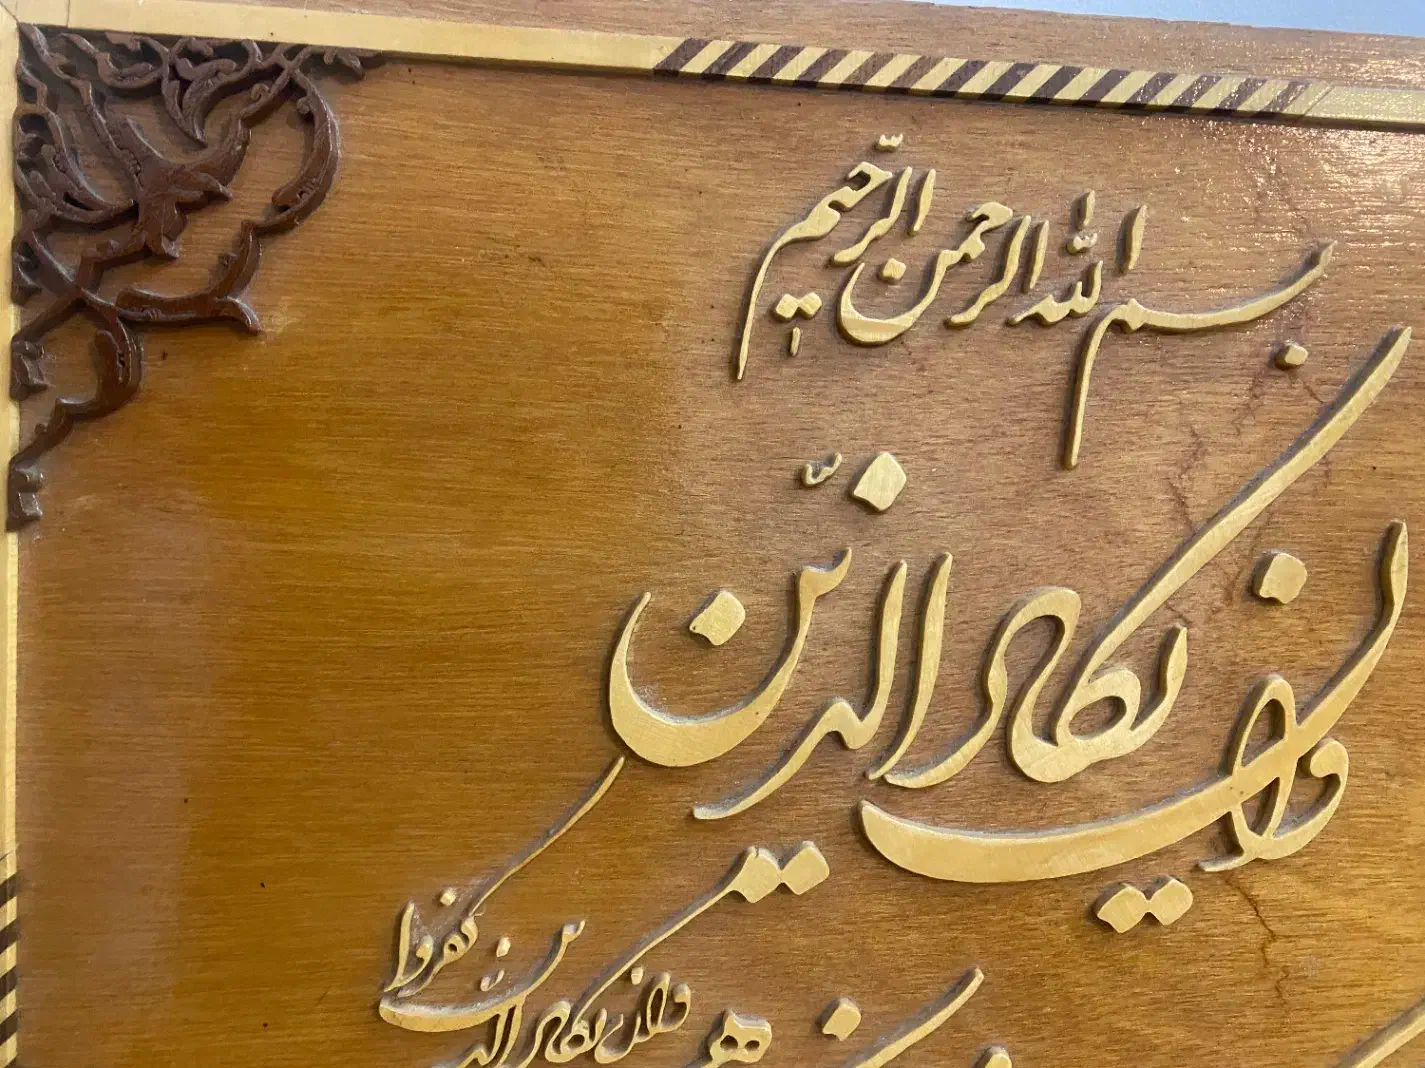 بسم الله الرحمن الرحیم
وان یکاد الذین
کفروا
وان یکاد الذین